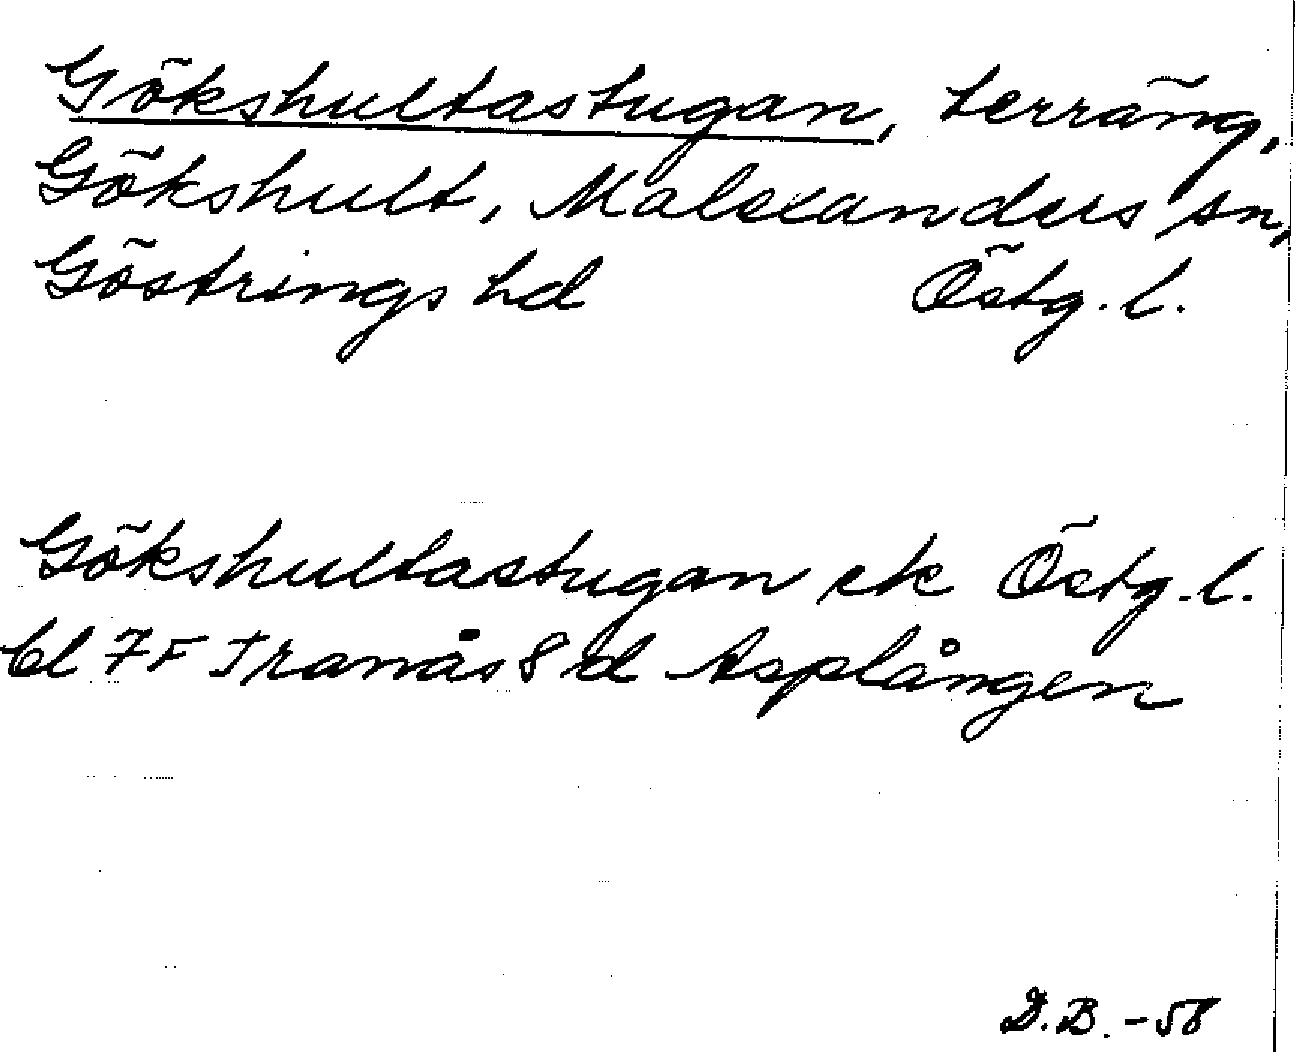 Gökshultastugan, terräng,
Gökshult, Malexanders sn,
Göstrings hd Östg. l.
Gökshultastugan ek Östg. l.
bl 7F Tranås 8 d Asplången
D.B. -58